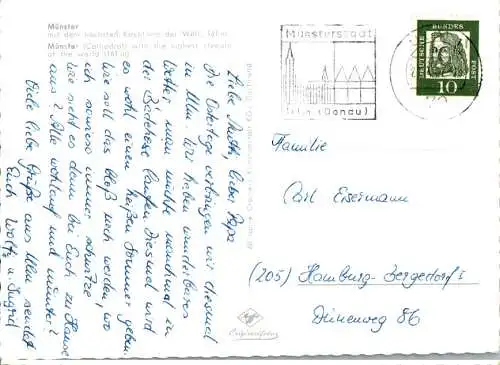 Münster
mit dem höchsten Kirchturm der Welt, 161 m
Münster (Cathedral) with the highest steeple
of the world (161 m)
Liebe Mutti, lieber Papa
Die Ostertage verbringen wir diesmal
in Ulm. Wir haben wunderbares
Wetter, man müßte manchmal in
der Badehose laufen. Diesmal wird
es wohl einen heißen Sommer geben
wie soll das bloß noch werden, wo
ich sowieso immer schwitze
Wie sieht es denn bei Euch zu Hause
aus? Alle wohlauf und munter?
Viele liebe Grüße aus Ulm sendet
Euch Wolf u. Ingrid
Münsterstadt
Ulm (Donau)
DEUTSCHE
BUNDES
POST
10
Familie
Carl Eisermann
(205) Hamburg-Bergedorf 1
Dünenweg 86